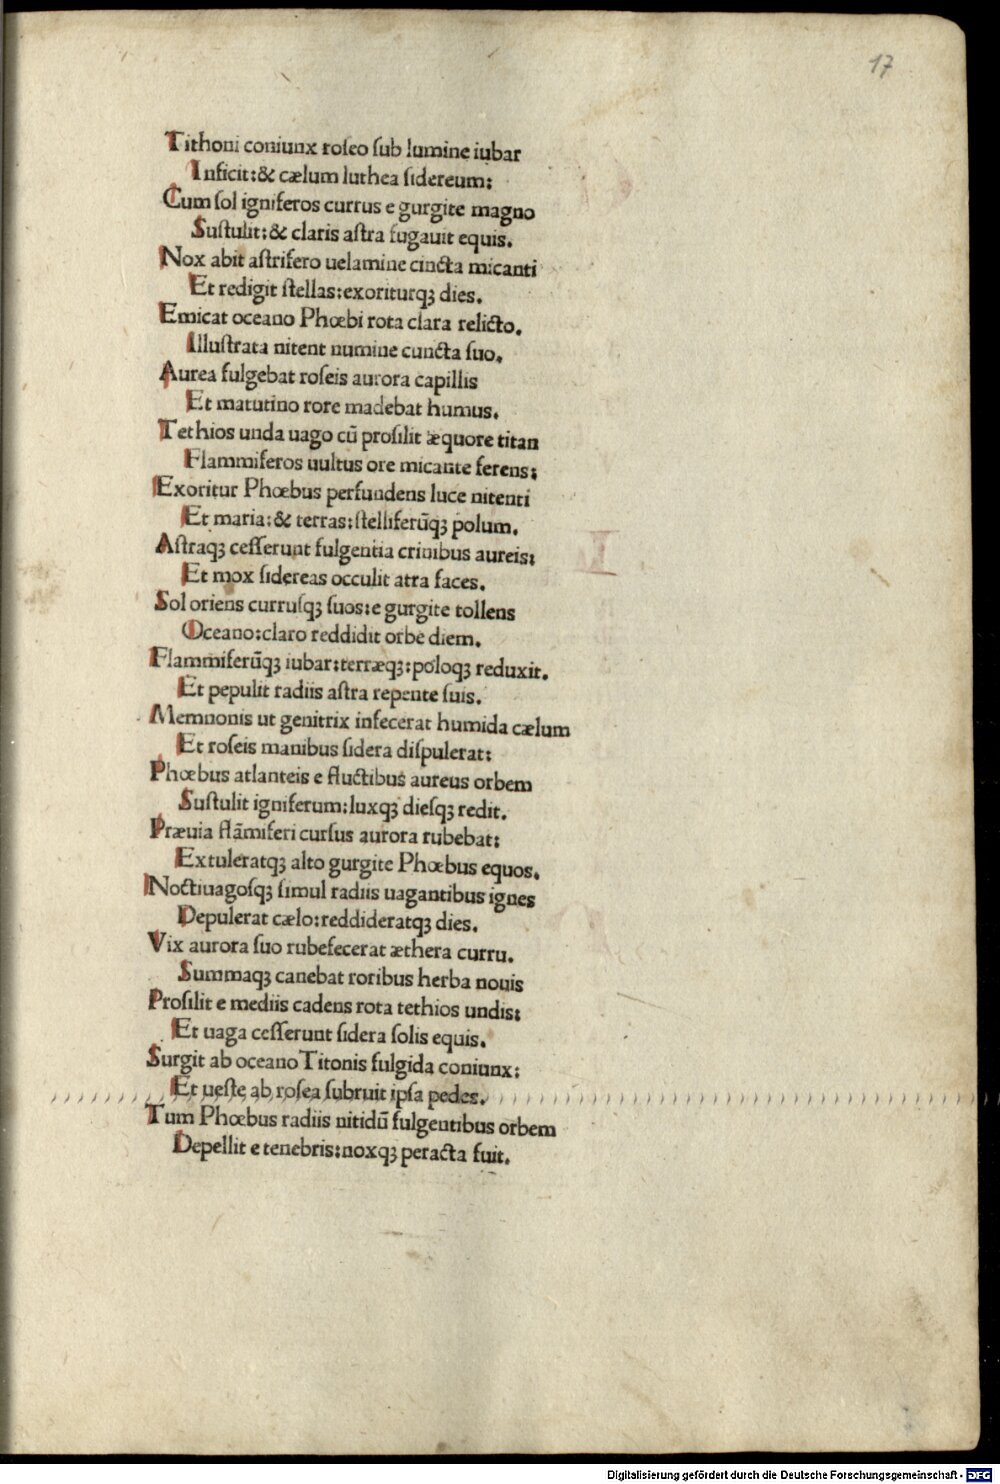 17
Tithoni coniunx roseo sub lumine iubar
Inficit: & cælum luthea sidereum:
Cum sol igniferos currus e gurgite magno
Sustulit: & claris astra fugauit equis.
Nox abit astrifero uelamine cincta micanti
Et redigit stellas: exoriturqꝫ dies.
Emicat oceano Phœbi rota clara relicto.
Illustrata nitent numine cuncta suo.
Aurea fulgebat roseis aurora capillis
Et matutino rore madebat humus.
Tethios unda uago cū prosilit æquore titan
Flammiferos uultus ore micante ferens:
Exoritur Phœbus perfundens luce nitenti
Et maria: & terras: stelliferūqꝫ polum.
Astraqꝫ cesserunt fulgentia crinibus aureis:
Et mox sidereas occulit atra faces.
Sol oriens currusqꝫ suos: e gurgite tollens
Oceano: claro reddidit orbe diem.
Flammiferūqꝫ iubar: terræqꝫ: poloqꝫ reduxit.
Et pepulit radiis astra repente suis.
Memnonis ut genitrix infecerat humida cælum
Et roseis manibus sidera dispulerat:
Phœbus atlanteis e fluctibus aureus orbem
Sustulit igniferum: luxqꝫ diesqꝫ redit.
Præuia flāmiferi cursus aurora rubebat:
Extuleratqꝫ alto gurgite Phœbus equos.
Noctiuagosqꝫ simul radiis uagantibus ignes
Depulerat cælo: reddideratqꝫ dies.
Vix aurora suo rubefecerat æthera curru.
Summaqꝫ canebat roribus herba nouis
Prosilit e mediis cadens rota tethios undis:
Et uaga cesserunt sidera solis equis.
Surgit ab oceano Titonis fulgida coniunx:
Et ueste ab rosea subruit ipsa pedes.
Tum Phœbus radiis nitidū fulgentibus orbem
Depellit e tenebris: noxqꝫ peracta fuit.
Digitalisierung gefördert durch die Deutsche Forschungsgemeinschaft - DFG